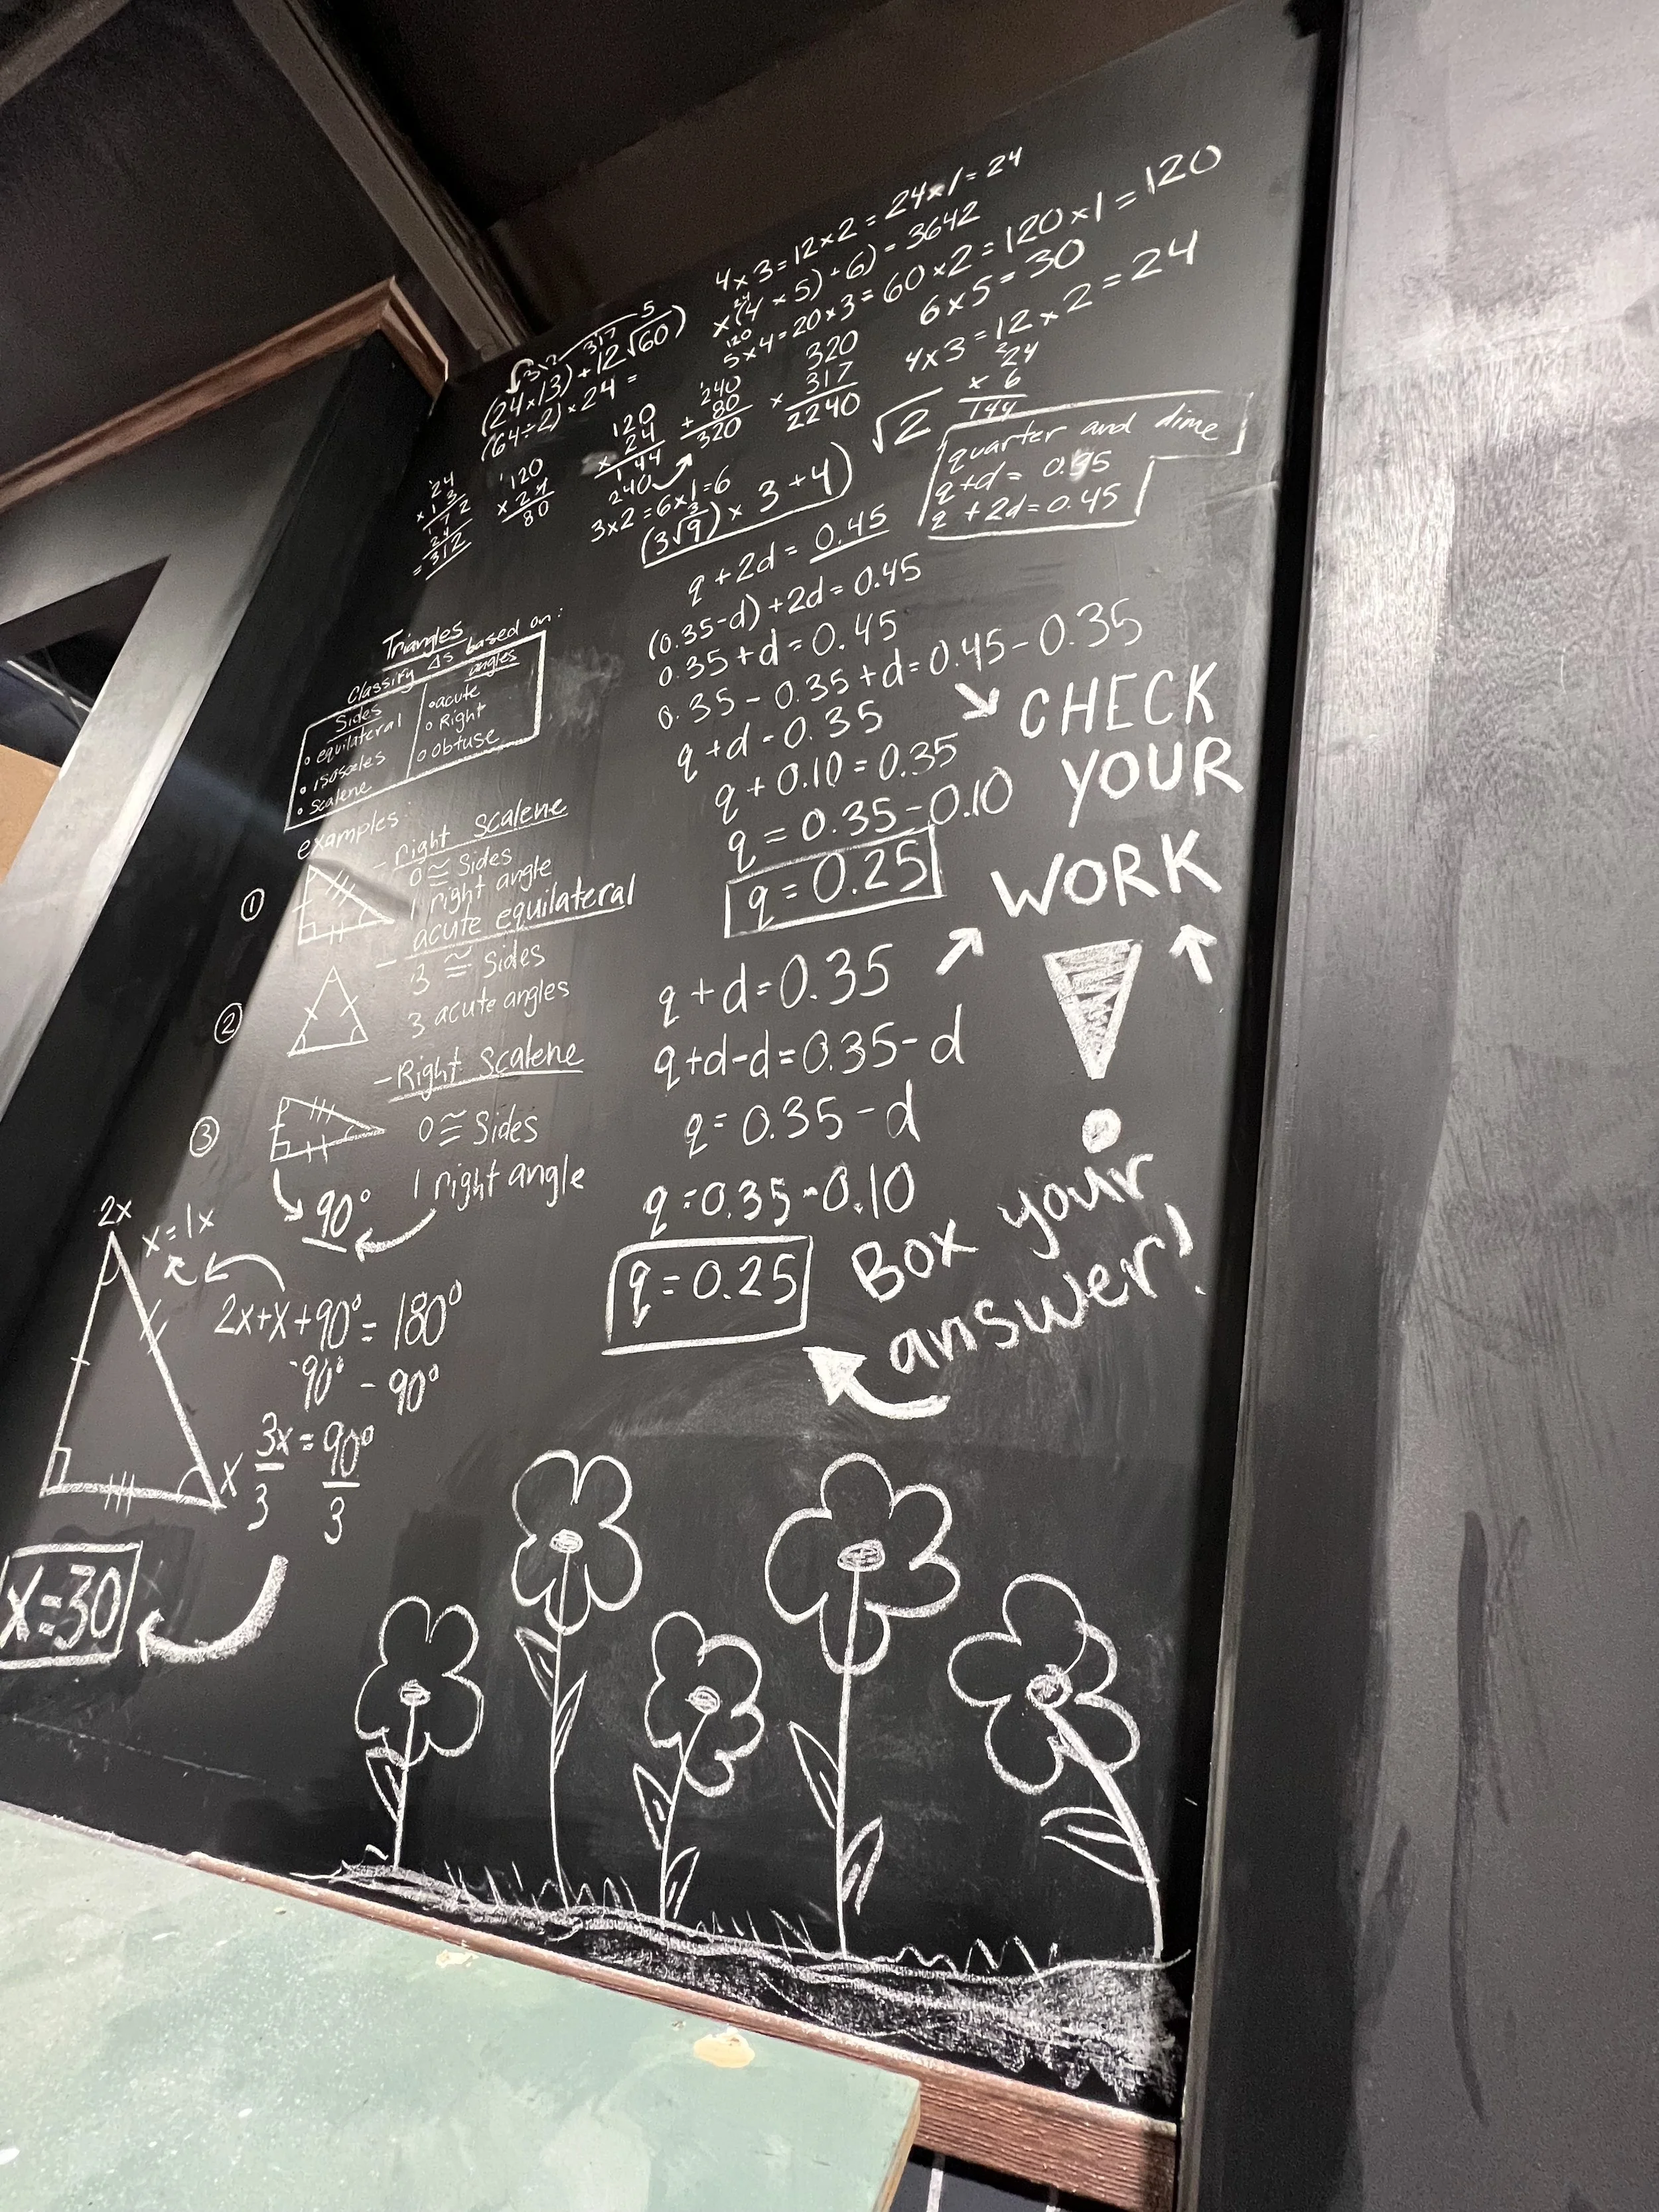 4×3=12×2=24×1=24
×(4×5)+6)=3642
5×4=20×3=60×2=120×1=120
6×5=30
4×3=12×2=24
24
× 6
144
√2
(24×13)+12√60)
(64÷2)×24=
24
×13
172
24
=312
120
×24
80
120
×24
144
240
240
+80
320
320
× 317
2240
3×2=6×1=6
(3√9)×3+4)
quarter and dime
q+d= 0.35
q+2d=0.45
q+2d=0.45
(0.35-d)+2d=0.45
0.35+d=0.45
0.35-0.35+d=0.45-0.35
q+d=0.35
q+0.10=0.35
q=0.35-0.10
q=0.25
CHECK
YOUR
WORK
q+d=0.35
q+d-d=0.35-d
q=0.35-d
q=0.35-0.10
q=0.25
Box your
answer!
Triangles
Classify Δs based on:
Sides
• equilateral
• isosceles
• scalene
angles
• acute
• Right
• obtuse
examples:
①
- right scalene
0 ≅ Sides
1 right angle
②
- acute equilateral
3 ≅ Sides
3 acute angles
③
- Right Scalene
0 ≅ Sides
1 right angle
90°
2x
x=1x
2x+x+90°=180°
-90° -90°
3x=90°
3 3
x
x=30